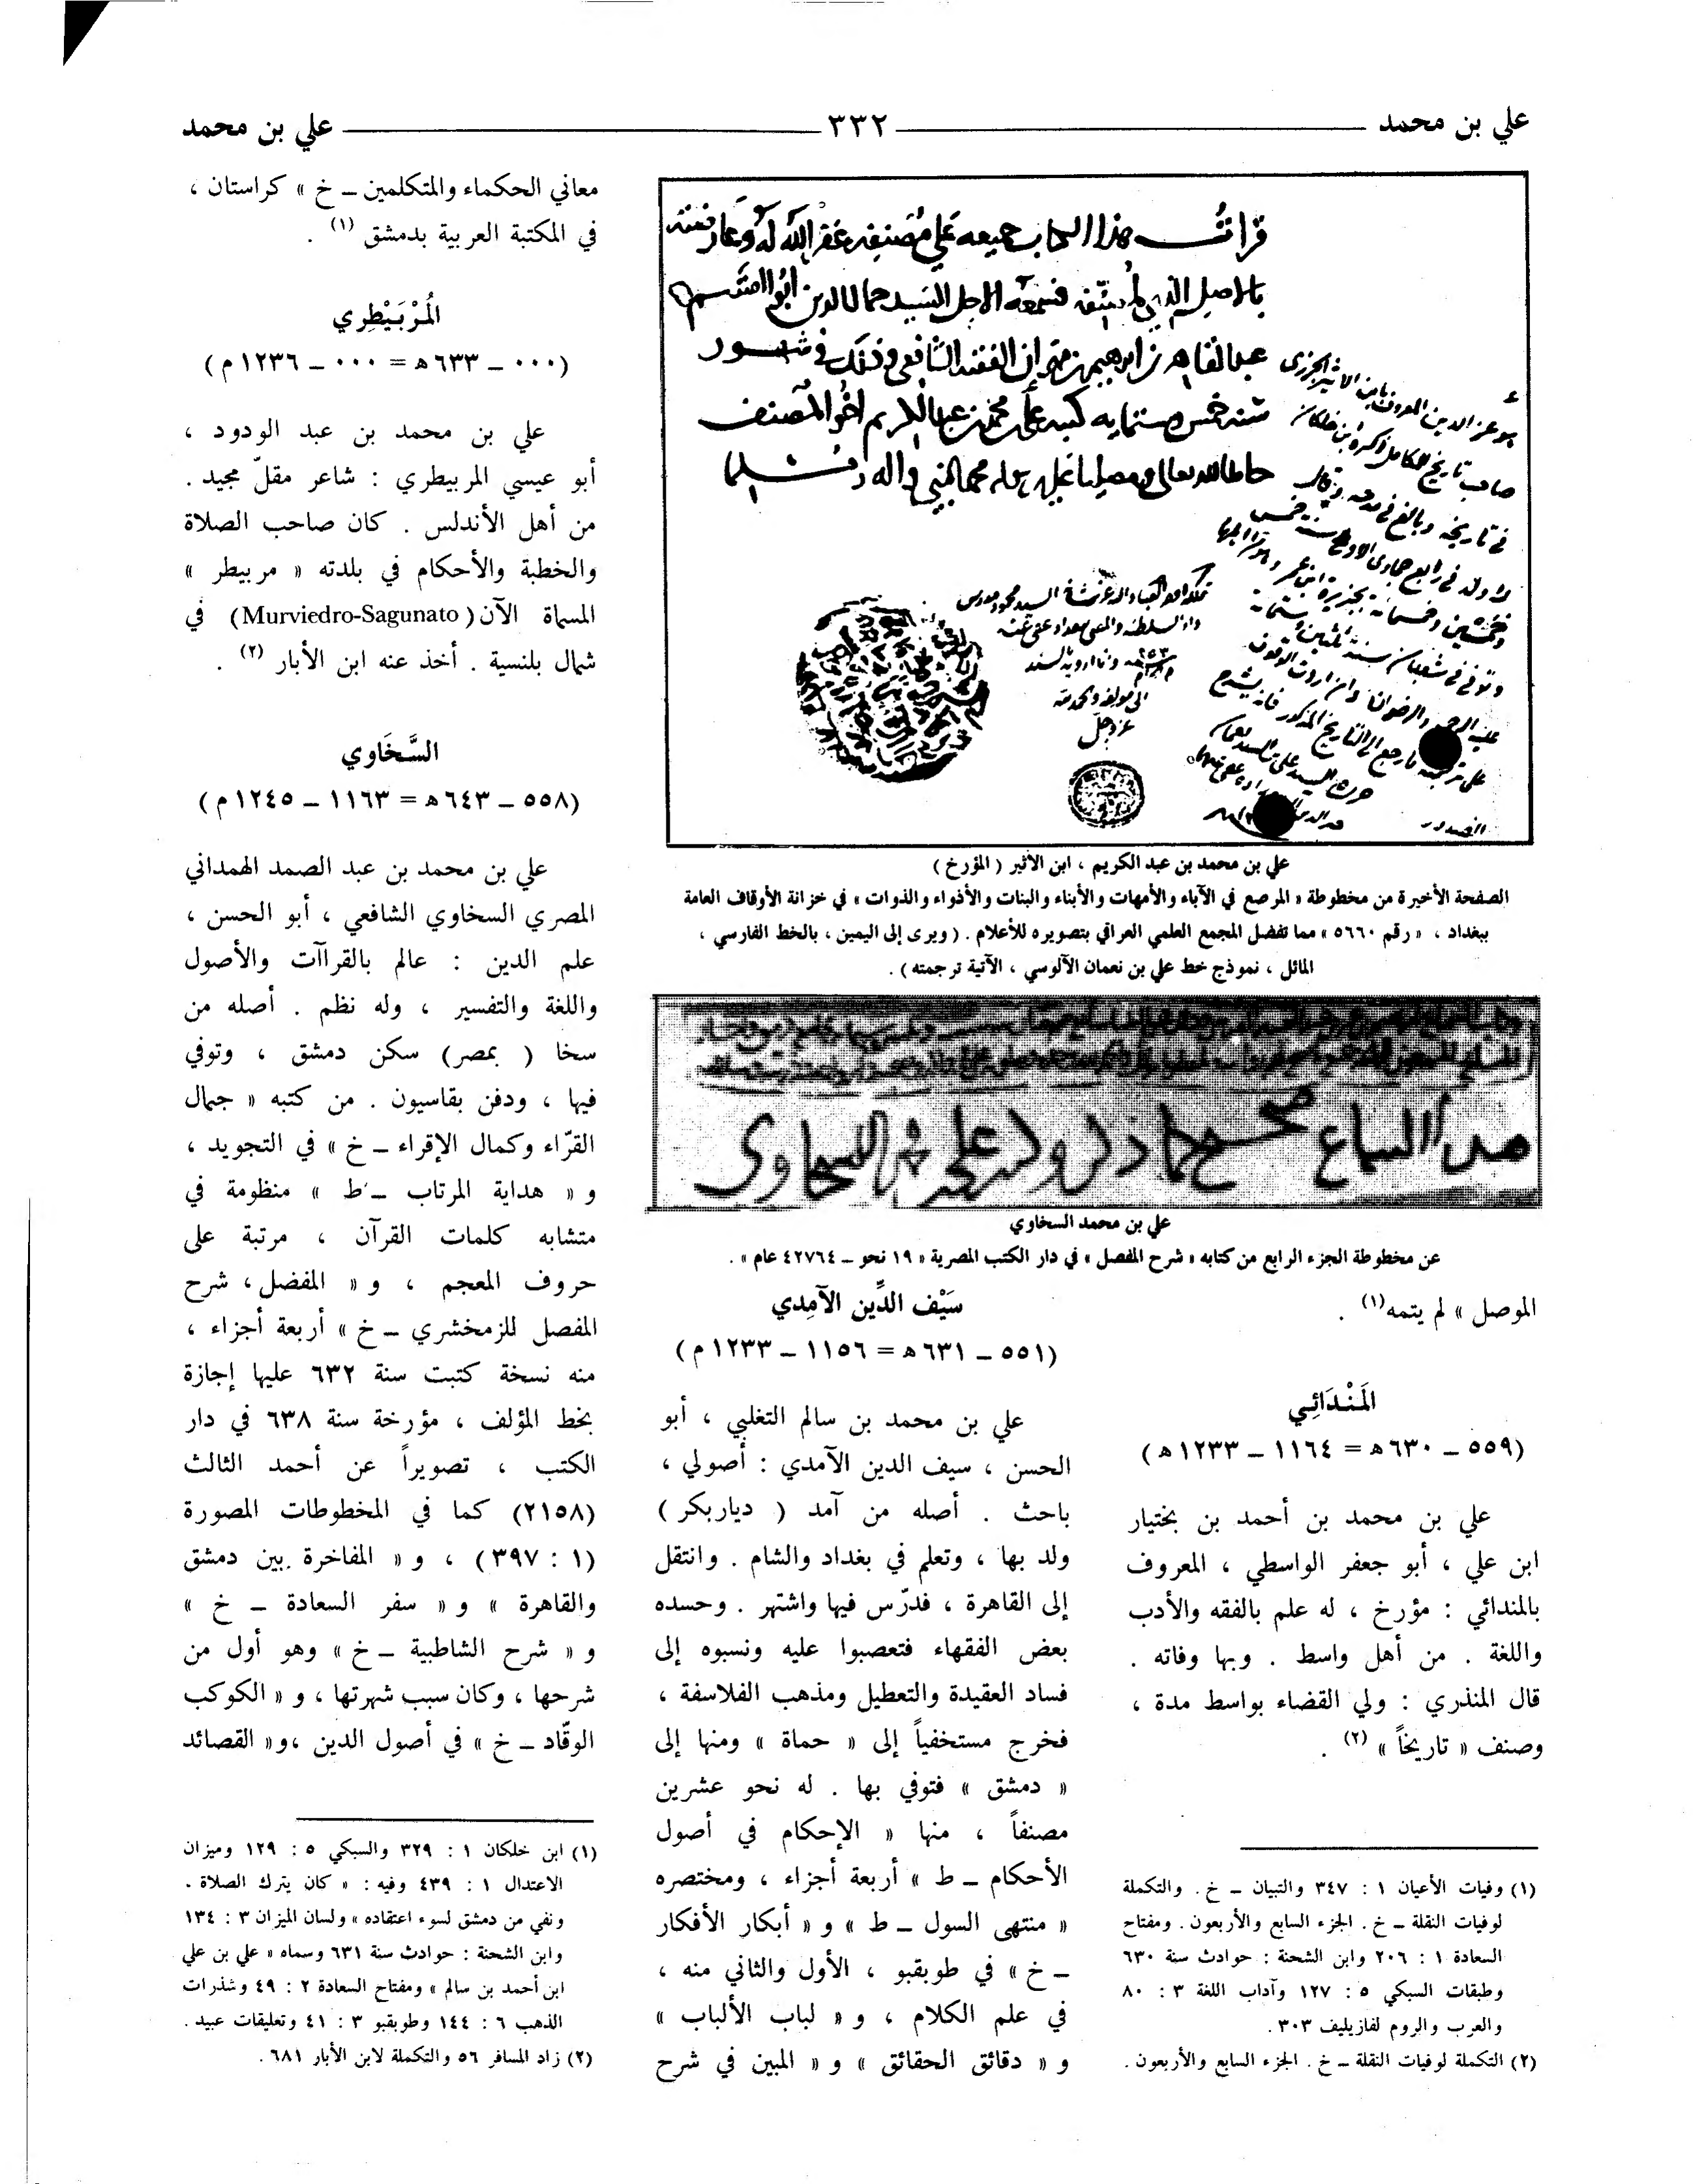 علي بن محمد
٣٣٢
علي بن محمد
علي بن محمد بن عبد الكريم ، ابن الأثير ( المؤرخ )
الصفحة الأخيرة من مخطوطة « المرصع في الآباء والأمهات والأبناء والبنات والأذواء والذوات » في خزانة الأوقاف العامة
ببغداد ، « رقم ٥٦٦٠ » مما تفضل المجمع العلمي العراقي بتصويره للأعلام . ( ويرى إلى اليمين ، بالخط الفارسي ،
المائل ، نموذج خط علي بن نعمان الآلوسي ، الآتية ترجمته ) .
هذا السماع صحيح كما ذكر وكتب علي بن محمد السخاوي
علي بن محمد السخاوي
عن مخطوطة الجزء الرابع من كتابه « شرح المفصل » في دار الكتب المصرية « ١٩ نحو ــ ٤٢٧٦٤ عام » .
الموصل » لم يتمه (١) .
المَنْدَائِي
(٥٥٩ ــ ٦٣٠ ه = ١١٦٤ ــ ١٢٣٣ ه)
علي بن محمد بن أحمد بن بختيار
ابن علي ، أبو جعفر الواسطي ، المعروف
بالمندائي : مؤرخ ، له علم بالفقه والأدب
واللغة . من أهل واسط . وبها وفاته .
قال المنذري : ولي القضاء بواسط مدة ،
وصنف « تاريخاً » (٢) .
(١) وفيات الأعيان ١ : ٣٤٧ والتبيان ــ خ . والتكملة
لوفيات النقلة ــ خ . الجزء السابع والأربعون . ومفتاح
السعادة ١ : ٢٠٦ وابن الشحنة : حوادث سنة ٦٣٠
وطبقات السبكي ٥ : ١٢٧ وآداب اللغة ٣ : ٨٠
والعرب والروم لفازيليف ٣٠٣ .
(٢) التكملة لوفيات النقلة ــ خ . الجزء السابع والأربعون .
سَيْف الدِّين الآمِدي
(٥٥١ ــ ٦٣١ ه = ١١٥٦ ــ ١٢٣٣ م)
علي بن محمد بن سالم التغلبي ، أبو
الحسن ، سيف الدين الآمدي : أصولي ،
باحث . أصله من آمد ( ديار بكر )
ولد بها ، وتعلم في بغداد والشام . وانتقل
إلى القاهرة ، فدرّس فيها واشتهر . وحسده
بعض الفقهاء فتعصبوا عليه ونسبوه إلى
فساد العقيدة والتعطيل ومذهب الفلاسفة ،
فخرج مستخفياً إلى « حماة » ومنها إلى
« دمشق » فتوفي بها . له نحو عشرين
مصنفاً ، منها « الإحكام في أصول
الأحكام ــ ط » أربعة أجزاء ، ومختصره
« منتهى السول ــ ط » و « أبكار الأفكار
ــ خ » في طوبقبو ، الأول والثاني منه ،
في علم الكلام ، و « لباب الألباب »
و « دقائق الحقائق » و « المبين في شرح
معاني الحكماء والمتكلمين ــ خ » كراستان ،
في المكتبة العربية بدمشق (١) .
المُرْبَيْطِري
(٠٠٠ ــ ٦٣٣ ه = ٠٠٠ ــ ١٢٣٦ م)
علي بن محمد بن عبد الودود ،
أبو عيسي المربيطري : شاعر مقلّ مجيد .
من أهل الأندلس . كان صاحب الصلاة
والخطبة والأحكام في بلدته « مربيطر »
المسماة الآن (Murviedro-Sagunato) في
شمال بلنسية . أخذ عنه ابن الأبار (٢) .
السَّخَاوي
(٥٥٨ ــ ٦٤٣ ه = ١١٦٣ ــ ١٢٤٥ م)
علي بن محمد بن عبد الصمد الهمداني
المصري السخاوي الشافعي ، أبو الحسن ،
علم الدين : عالم بالقراآت والأصول
واللغة والتفسير ، وله نظم . أصله من
سخا ( بمصر ) سكن دمشق ، وتوفي
فيها ، ودفن بقاسيون . من كتبه « جمال
القرّاء وكمال الإقراء ــ خ » في التجويد ،
و « هداية المرتاب ــ ط » منظومة في
متشابه كلمات القرآن ، مرتبة على
حروف المعجم ، و « المفضل ، شرح
المفصل للزمخشري ــ خ » أربعة أجزاء ،
منه نسخة كتبت سنة ٦٣٢ عليها إجازة
بخط المؤلف ، مؤرخة سنة ٦٣٨ في دار
الكتب ، تصويراً عن أحمد الثالث
(٢١٥٨) كما في المخطوطات المصورة
(١ : ٣٩٧) ، و « المفاخرة بين دمشق
والقاهرة » و « سفر السعادة ــ خ »
و « شرح الشاطبية ــ خ » وهو أول من
شرحها ، وكان سبب شهرتها ، و « الكوكب
الوقّاد ــ خ » في أصول الدين ، و « القصائد
(١) ابن خلكان ١ : ٣٢٩ والسبكي ٥ : ١٢٩ وميزان
الاعتدال ١ : ٤٣٩ وفيه : « كان يترك الصلاة .
ونفي من دمشق لسوء اعتقاده » ولسان الميزان ٣ : ١٣٤
وابن الشحنة : حوادث سنة ٦٣١ وسماه « علي بن علي
ابن أحمد بن سالم » ومفتاح السعادة ٢ : ٤٩ وشذرات
الذهب ٦ : ١٤٤ وطوبقبو ٣ : ٤١ وتعليقات عبيد .
(٢) زاد المسافر ٥٦ والتكملة لابن الأبار ٦٨١ .